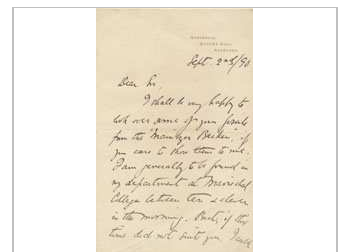 Sept. 2nd/90
Dear Sir,
I shall be very happy to
look over some of your pearls
from the "Manitzor Becken" if
you care to show them to me.
I am generally to be found in
my department at Marischal
College between ten & eleven
in the morning. But, if this
time did not suit you, I could